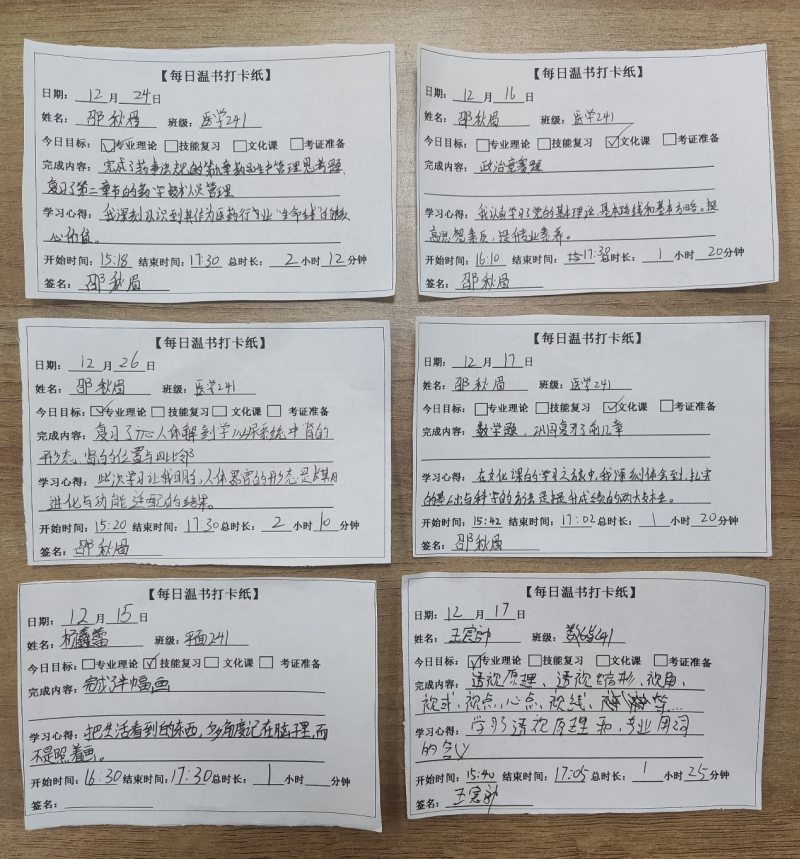 【每日温书打卡纸】
日期：12月24日
姓名：邵秋眉 班级：医学241
今日目标：专业理论 技能复习 文化课 考证准备
完成内容：完成了药事法规的第九章药品生产管理思考题
复习了第二章节的药学技术人员管理
学习心得：我深刻认识到其作为医药行业"生命线"的核
心价值。
开始时间：15:18 结束时间：17:30 总时长：2小时12分钟
签名：邵秋眉
【每日温书打卡纸】
日期：12月16日
姓名：邵秋眉 班级：医学241
今日目标：专业理论 技能复习 文化课 考证准备
完成内容：政治竞赛题
学习心得：我认真学习了党的基本理论，基本路线和基本方略。提
高思想素质，提升专业素养。
开始时间：16:10 结束时间：17:30 总时长：1小时20分钟
签名：邵秋眉
【每日温书打卡纸】
日期：12月26日
姓名：邵秋眉 班级：医学241
今日目标：专业理论 技能复习 文化课 考证准备
完成内容：复习了人体解剖学泌尿系统中肾的
形态、肾的位置与毗邻
学习心得：此次学习让我明白，人体器官的形态是其
进化与功能适配的结果。
开始时间：15:20 结束时间：17:30 总时长：2小时10分钟
签名：邵秋眉
【每日温书打卡纸】
日期：12月17日
姓名：邵秋眉 班级：医学241
今日目标：专业理论 技能复习 文化课 考证准备
完成内容：数学题，巩固复习了前几章
学习心得：在文化课的学习之旅中，我深刻体会到，扎实
的基础与科学的方法是提升成绩的两大支柱。
开始时间：15:42 结束时间：17:02 总时长：1小时20分钟
签名：邵秋眉
【每日温书打卡纸】
日期：12月15日
姓名：杨鑫蕾 班级：平面241
今日目标：专业理论 技能复习 文化课 考证准备
完成内容：完成了半幅画
学习心得：把生活看到的东西，多角度记在脑子里，而
不是照着画。
开始时间：16:30 结束时间：17:30 总时长：1小时 分钟
签名：
【每日温书打卡纸】
日期：12月17日
姓名：王 班级：241
今日目标：专业理论 技能复习 文化课 考证准备
完成内容：透视原理、透视图形、视角、
视域、视点、心点、视线、等...
学习心得：学习了透视原理和，专业用词
的含义
开始时间：15:40 结束时间：17:05 总时长：1小时25分钟
签名：王